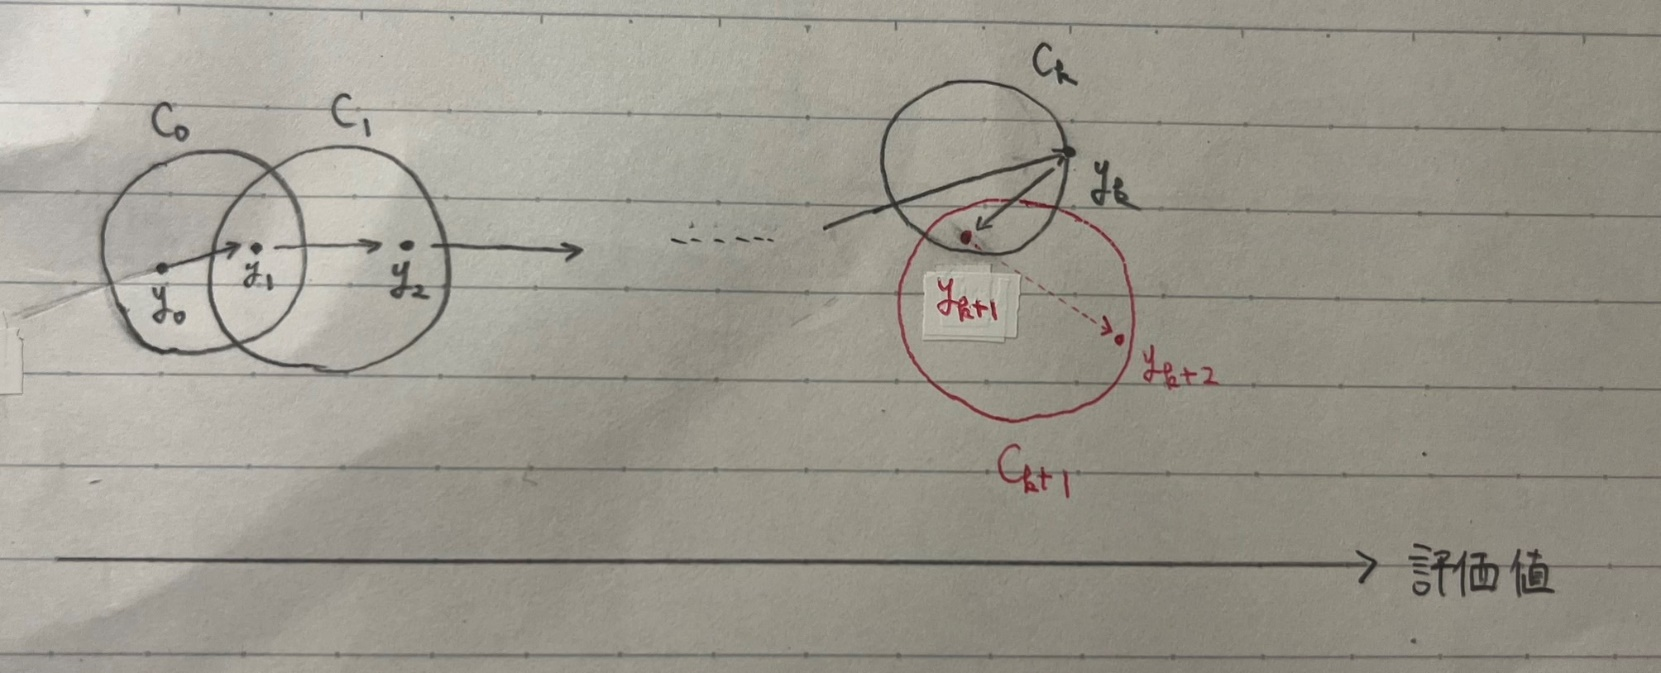 C₀
C₁
Cₖ
y₀
y₁
y₂
yₖ
yₖ₊₁
yₖ₊₂
Cₖ₊₁
評価値